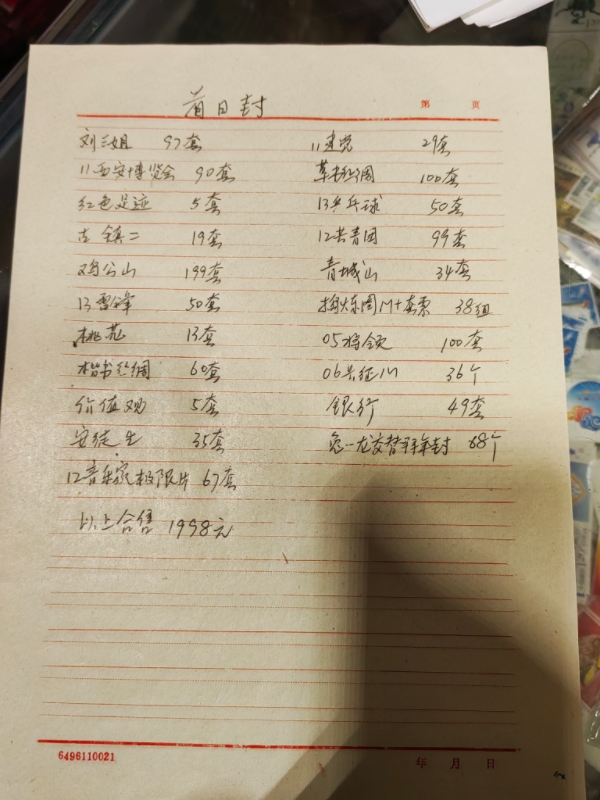 首日封
第 页
刘三姐 97套 11建党 29套
11西安博览会 90套 草书丝绸 100套
红色足迹 5套 13乒乓球 50套
古镇二 19套 12共青团 99套
鸡公山 199套 青城山 34套
13雷锋 50套 38组
桃花 13套 05将领 100套
楷书丝绸 60套 06长征M 36个
价值观 5套 银行 49套
安徒生 35套 兔—龙交替拜年封 68个
12音乐家极限片 67套
以上合售 1998元
6496110021
年 月 日